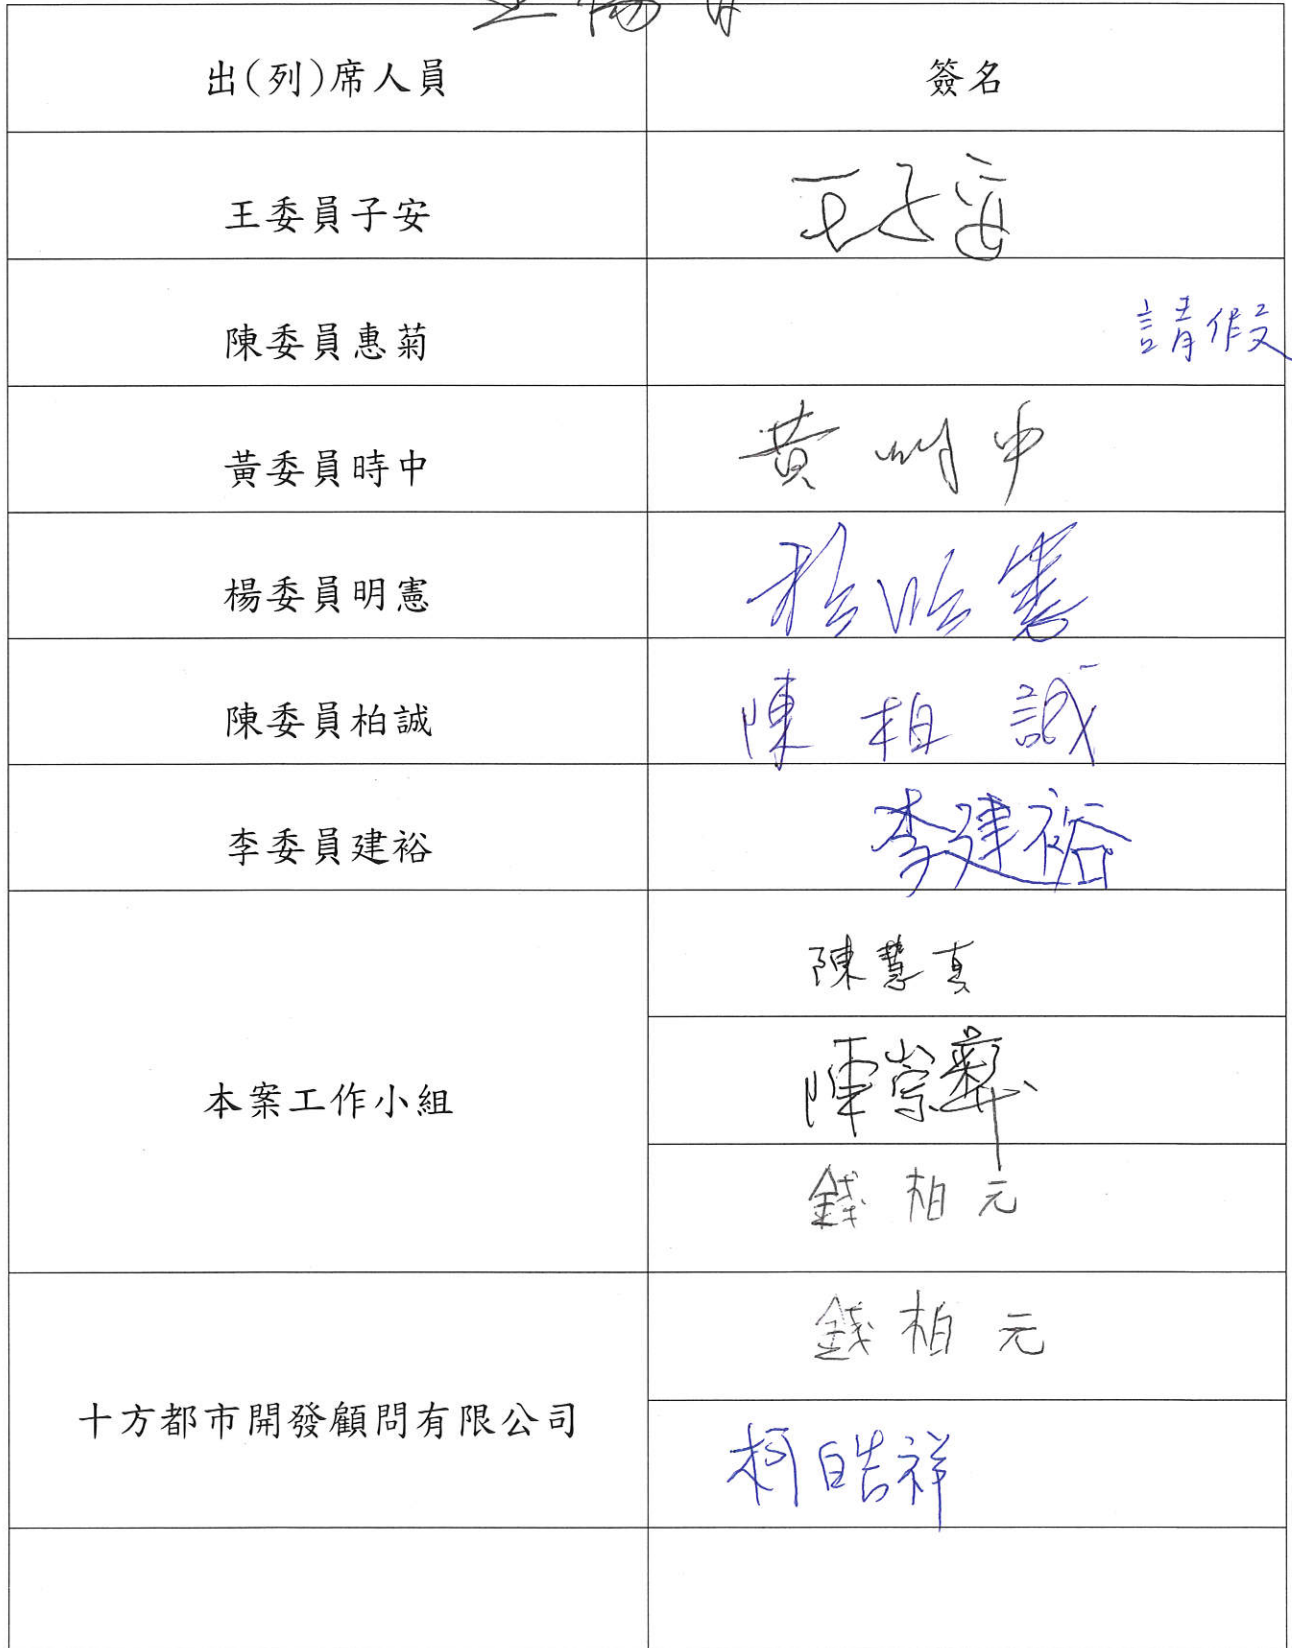 出(列)席人員
簽名
王委員子安
王子安
陳委員惠菊
請假
黃委員時中
黃時中
楊委員明憲
楊明憲
陳委員柏誠
陳柏誠
李委員建裕
李建裕
本案工作小組
陳慧真
陳崇彝
錢柏元
十方都市開發顧問有限公司
錢柏元
柯皓祥